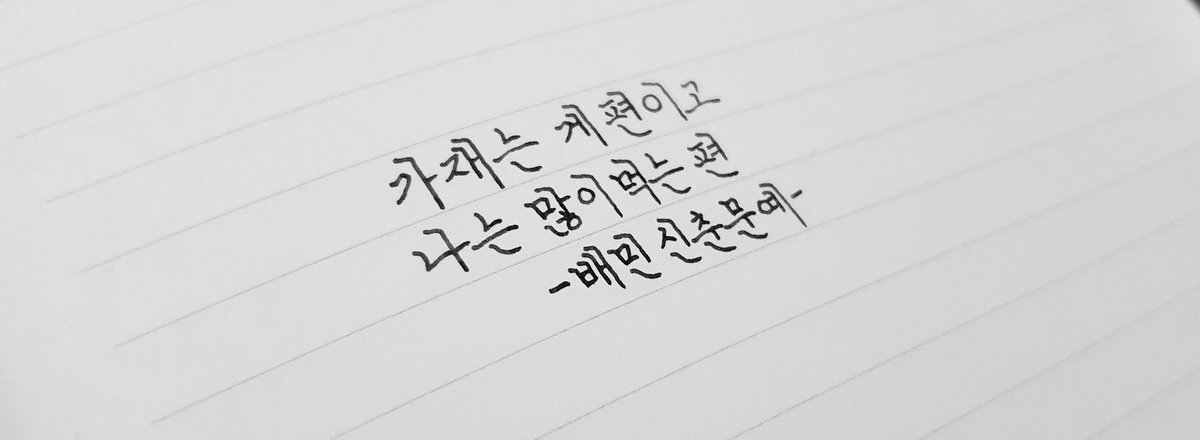 가재는 게 편이고
나는 많이 먹는 편
-배민 신춘문예-